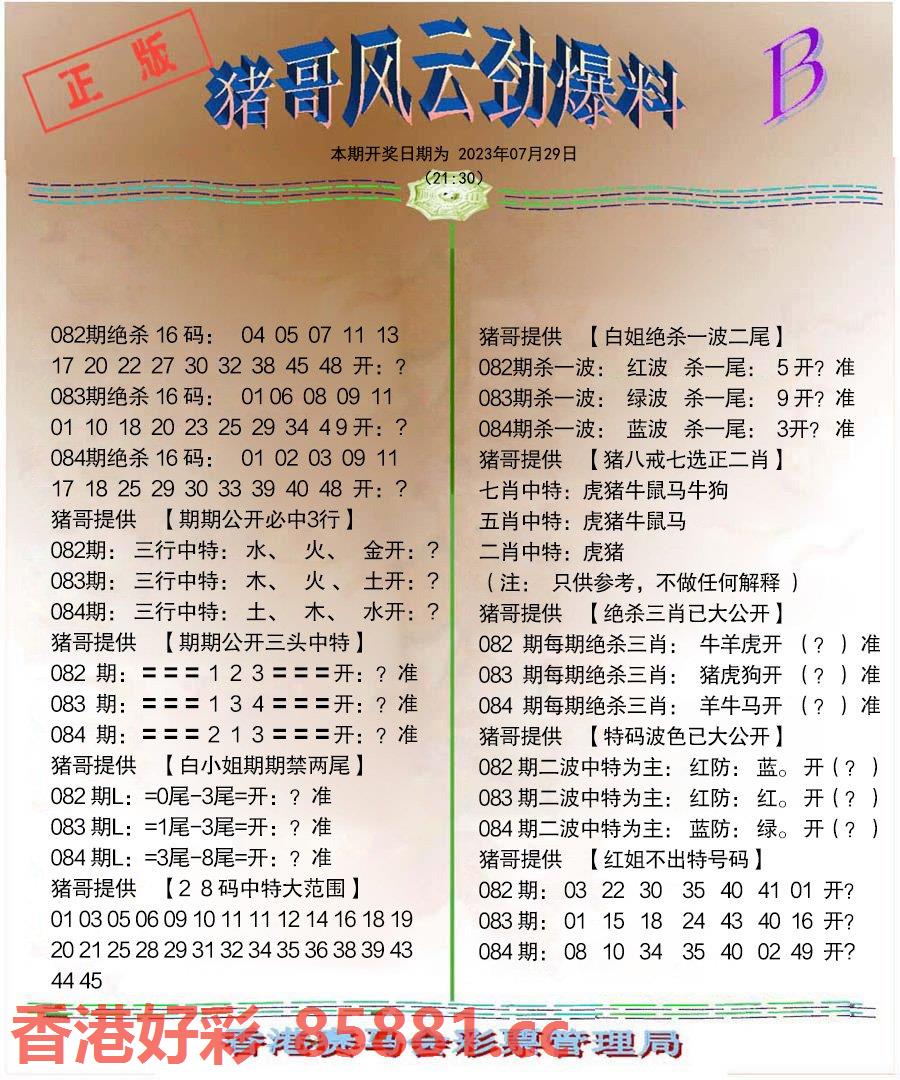 正版
猪哥风云劲爆料
B
本期开奖日期为 2023年07月29日
（21:30）
082期绝杀 16 码： 04 05 07 11 13
17 20 22 27 30 32 38 45 48 开：?
083期绝杀 16 码： 01 06 08 09 11
01 10 18 20 23 25 29 34 4 9 开：?
084期绝杀 16 码： 01 02 03 09 11
17 18 25 29 30 33 39 40 48 开：?
猪哥提供 【期期公开必中3行】
082期： 三行中特： 水、 火、 金开：?
083期： 三行中特： 木、 火 、 土开：?
084期： 三行中特： 土、 木、 水开：?
猪哥提供 【期期公开三头中特】
082 期：＝＝＝１２３＝＝＝开：? 准
083 期：＝＝＝１３４＝＝＝开：? 准
084 期：＝＝＝２１３＝＝＝开：? 准
猪哥提供 【白小姐期期禁两尾】
082 期L：=0尾-3尾=开：? 准
083 期L：=1尾-3尾=开：? 准
084 期L：=3尾-8尾=开：? 准
猪哥提供 【２８码中特大范围】
01 03 05 06 09 10 11 11 12 14 16 18 19
20 21 25 28 29 31 32 34 35 36 38 39 43
44 45
猪哥提供 【白姐绝杀一波二尾】
082期杀一波： 红波 杀一尾： 5 开? 准
083期杀一波： 绿波 杀一尾： 9 开? 准
084期杀一波： 蓝波 杀一尾： 3开? 准
猪哥提供 【猪八戒七选正二肖】
七肖中特：虎猪牛鼠马牛狗
五肖中特：虎猪牛鼠马
二肖中特：虎猪
（注： 只供参考，不做任何解释 ）
猪哥提供 【绝杀三肖已大公开】
082 期每期绝杀三肖： 牛羊虎开 （? ）准
083 期每期绝杀三肖： 猪虎狗开 （? ）准
084 期每期绝杀三肖： 羊牛马开 （? ）准
猪哥提供 【特码波色已大公开】
082 期二波中特为主：红防：蓝。开（? ）
083 期二波中特为主：红防：红。开（? ）
084 期二波中特为主：蓝防：绿。开（? ）
猪哥提供 【红姐不出特号码】
082 期： 03 22 30 35 40 41 01 开?
083 期： 01 15 18 24 43 40 16 开?
084 期： 08 10 34 35 40 02 49 开?
香港好彩 85881.cc
香港赛马会彩票管理局